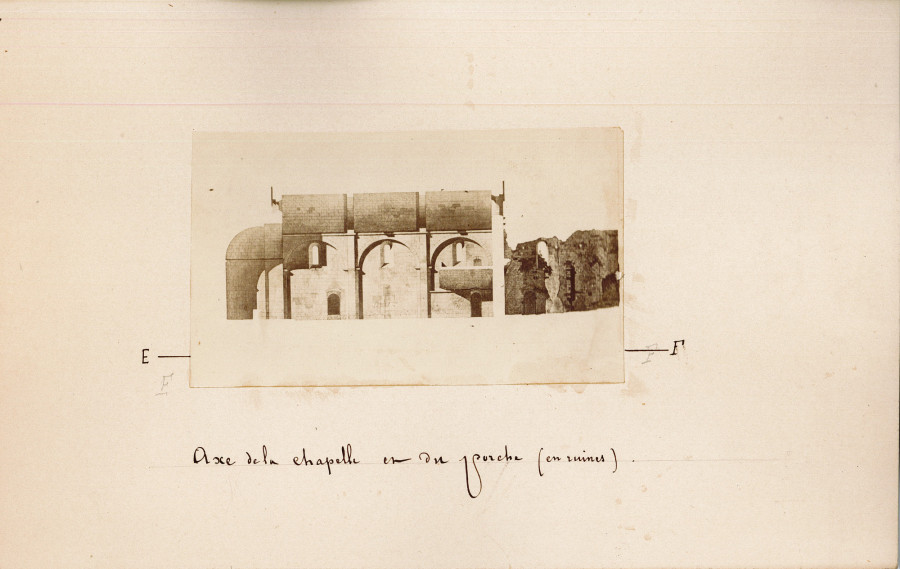 E F
F F
Axe de la chapelle et du porche (en ruines).